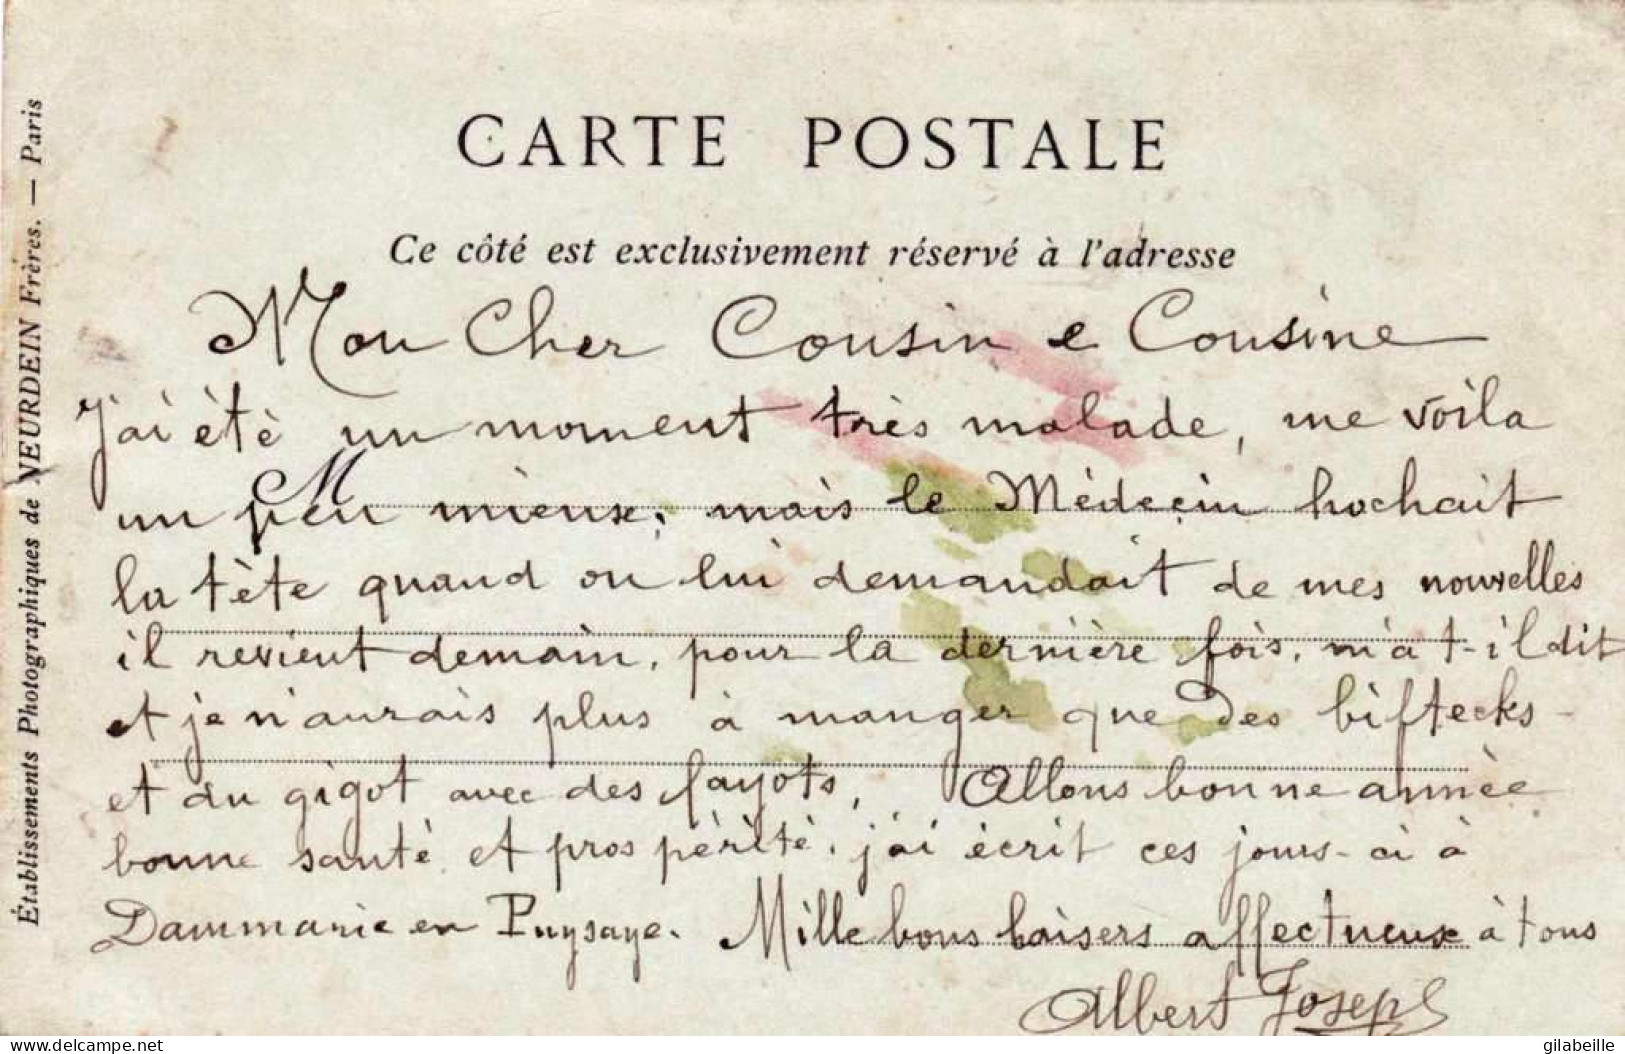 CARTE POSTALE
Ce côté est exclusivement réservé à l'adresse
Établissements Photographiques de NEURDEIN Frères. — Paris
Mon Cher Cousin e Cousine
J'ai étè un moment très malade, me voila
M
un peu mieux; mais le Médecin hochait
la tète quand on lui demandait de mes nouvelles
il revient demain, pour la dernière fois, m'a t-il dit
et je n'aurais plus à manger que des biftecks-
et du gigot avec des fayots, Allons bonne annèe
bonne santè et prospérité. j'ai ècrit ces jours-ci à
Dammarie en Puysaye. Mille bons baisers affectueux à tous
Albert Joseph
delcampe.net
gilabeille